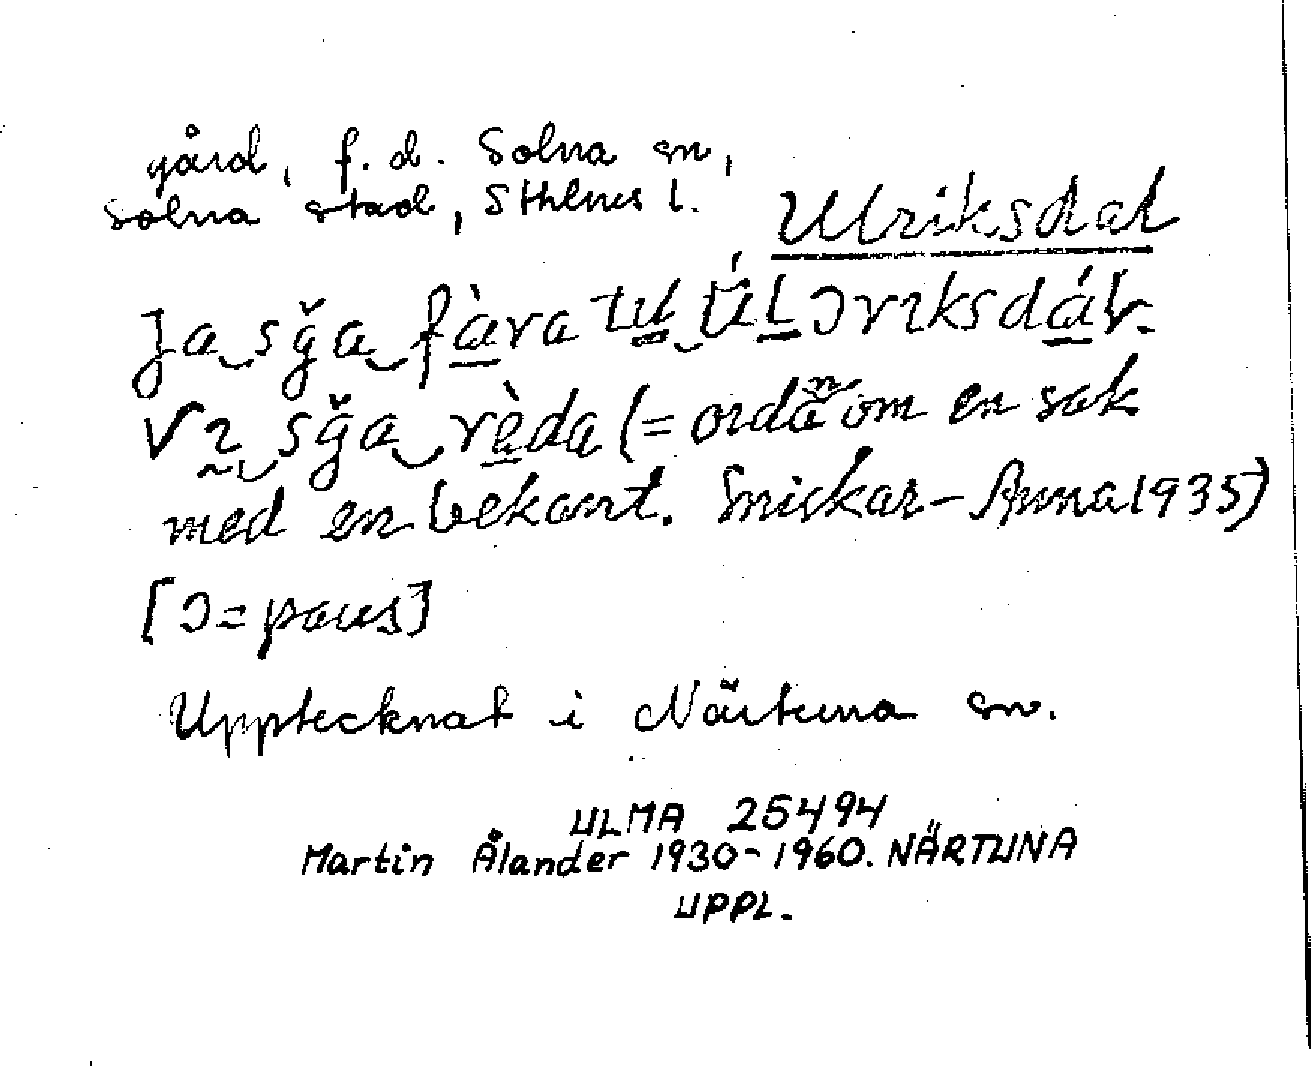 gård, f. d. Solna sn,
Solna stad, Sthlms l.
Ulriksdal
Ja sğa fàra tɩl Úl ɔ rɩksdál.
Vɩ sğa rèda (= ordän om en sak
med en bekant. Snickar-Anna 1935)
[ɔ = paus]
Upptecknat i Närtuna sn.
ULMA 25494
Martin Ålander 1930-1960. NÄRTUNA
UPPL.